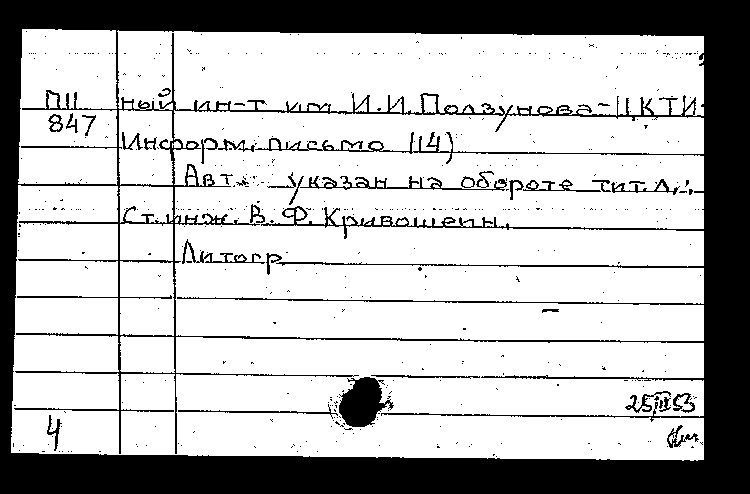 П11 ный ин-т им И.И.Ползунова-ЦКТИ.
847
Информ. письмо (14)
Авт. указан на обороте тит. л.:
Ст. инж. В. Ф. Кривошеин.
Литогр.
25/III 53
4